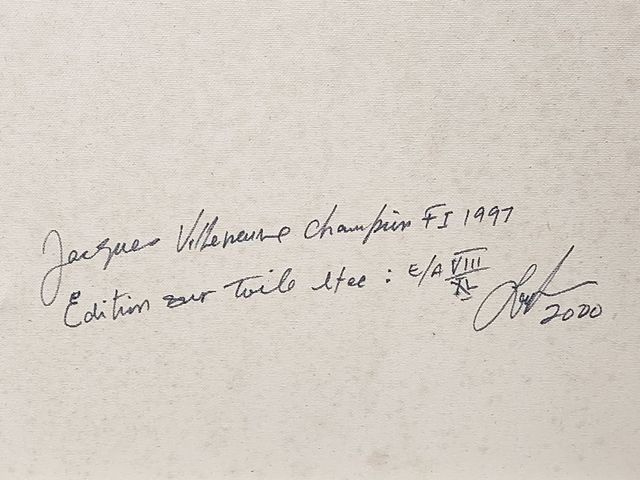 Jacques Villeneuve Champion F1 1997
Edition sur Toile ltee : E/A VIII/XL
2000